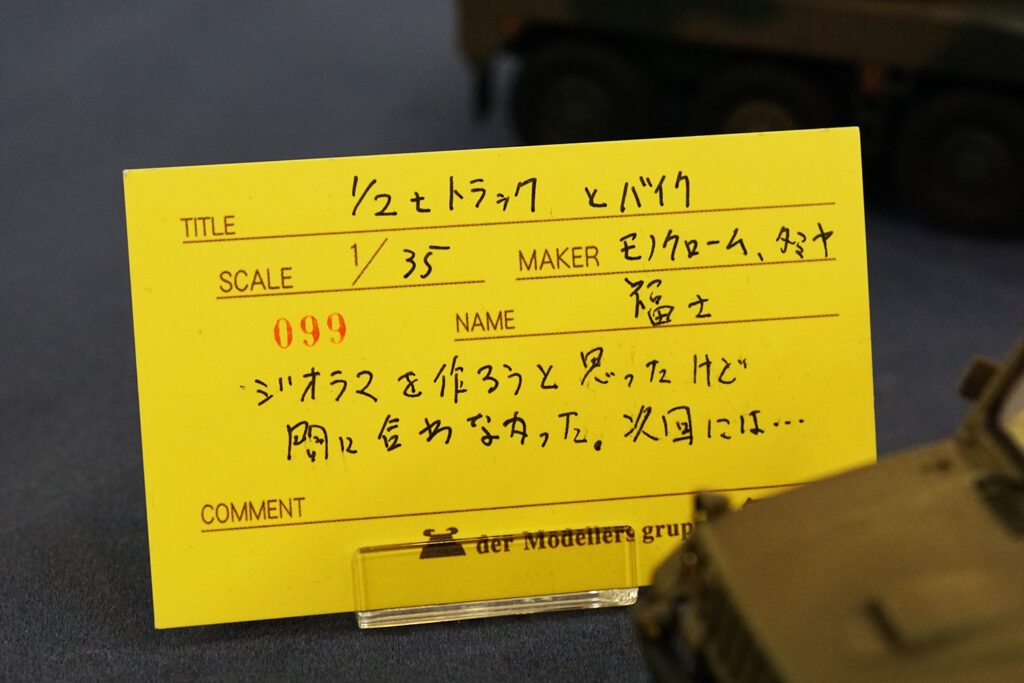 TITLE 1/2t トラック とバイク
SCALE 1/35 MAKER モノクローム、タミヤ
099 NAME 福士
ジオラマを作ろうと思ったけど
間に合わなかった。次回には…
COMMENT
der Modellers